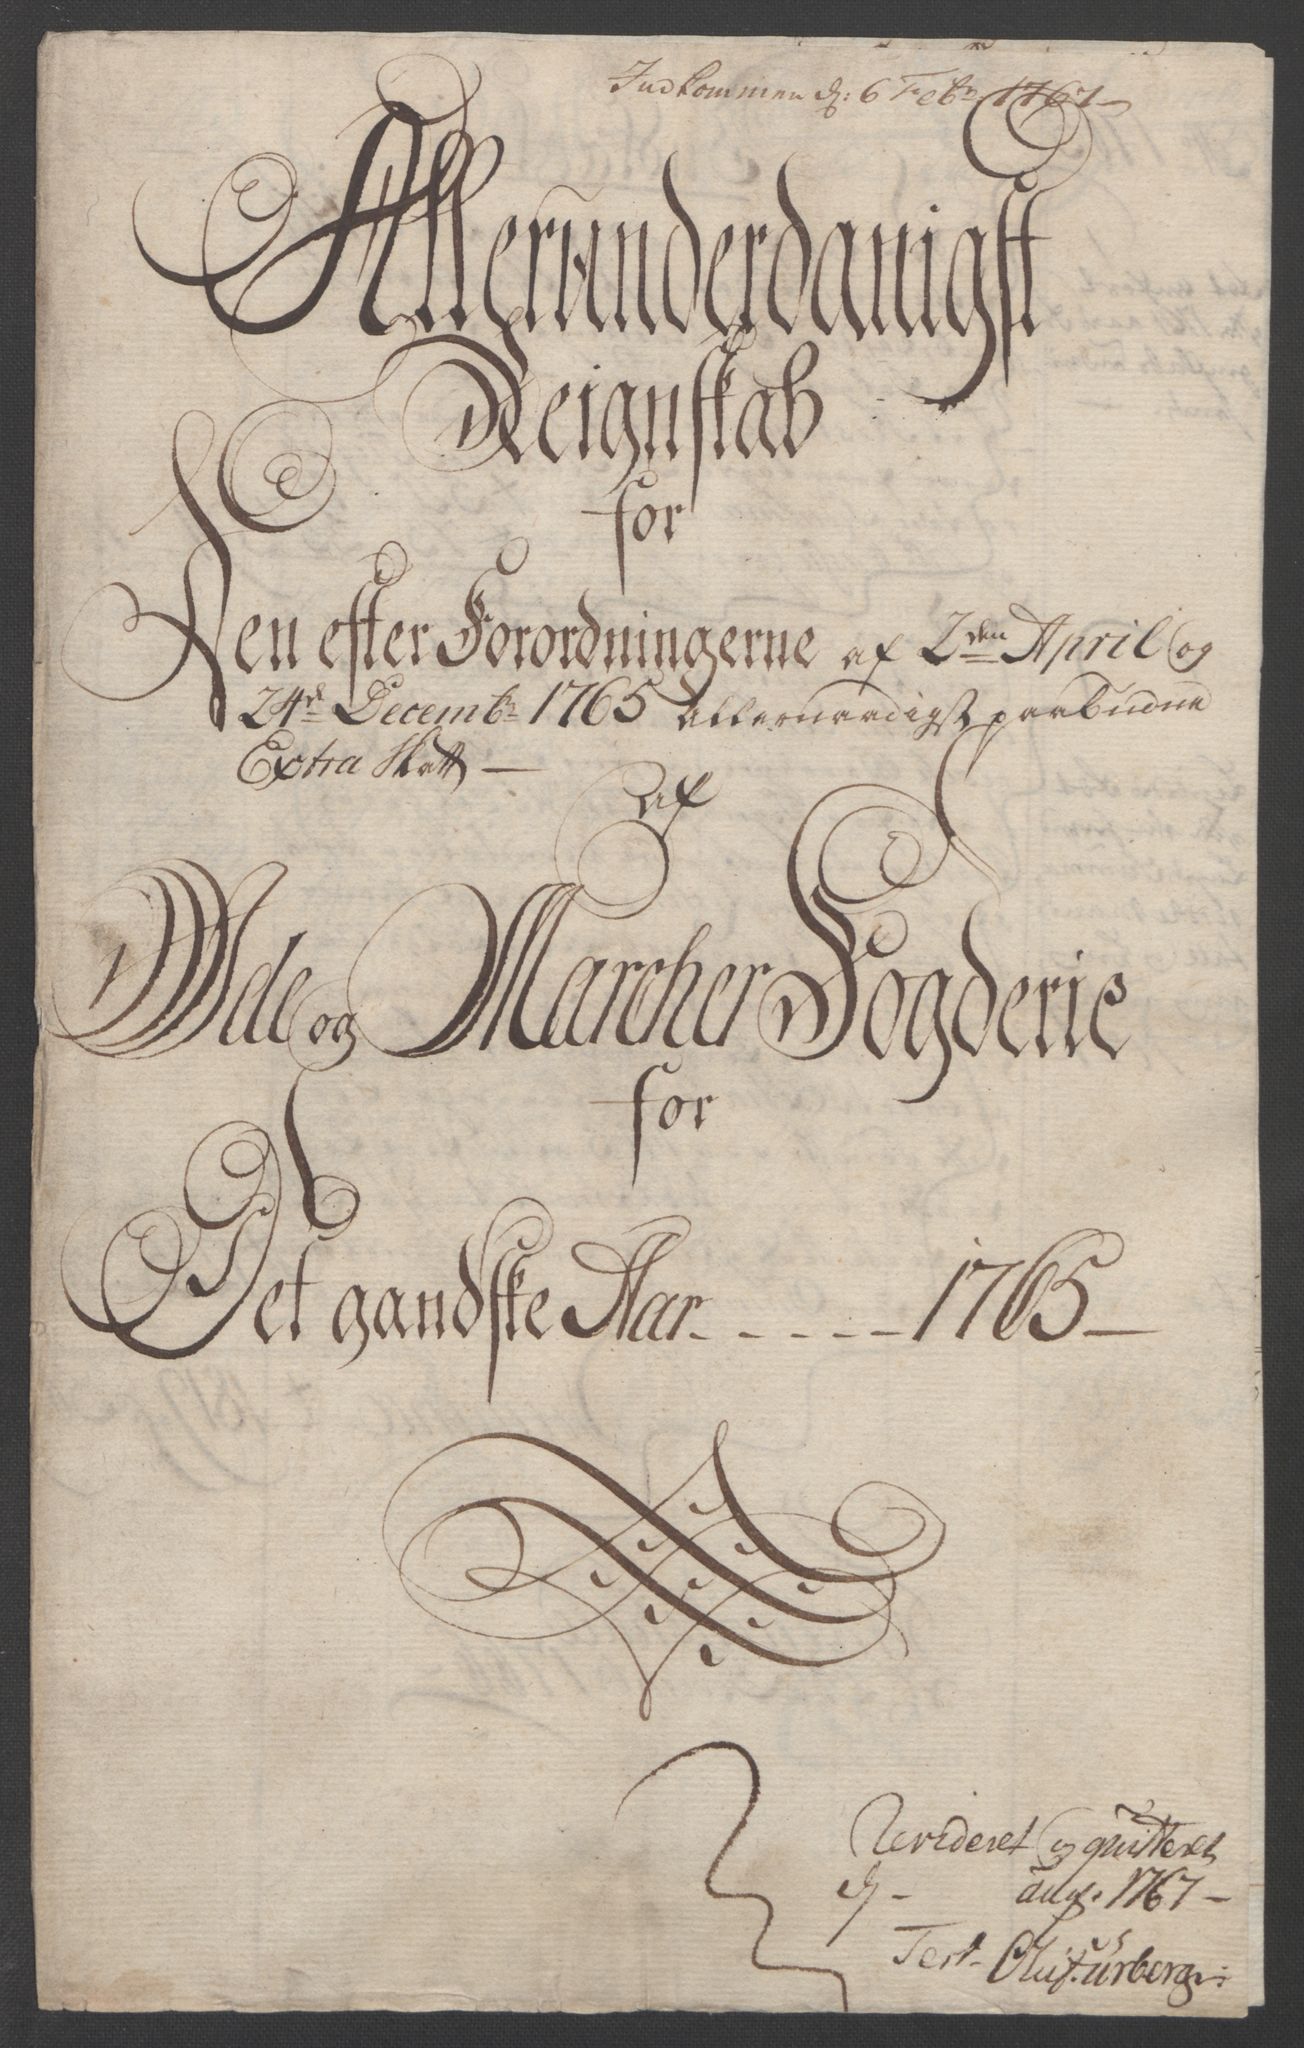 Indkommen d: 6 Febr: 1767
Allerunderdanigst
Reignskab
for
Den efter Forordningerne af 2den April og
24de Decembr 1765 allernaadigst paabudne
Extra Skatt —
af
Ide og Marcher Fogderie
for
Det gandske Aar - - - - - 1765 —
Revideret og quitteret
d - aug. 1767 —
Test